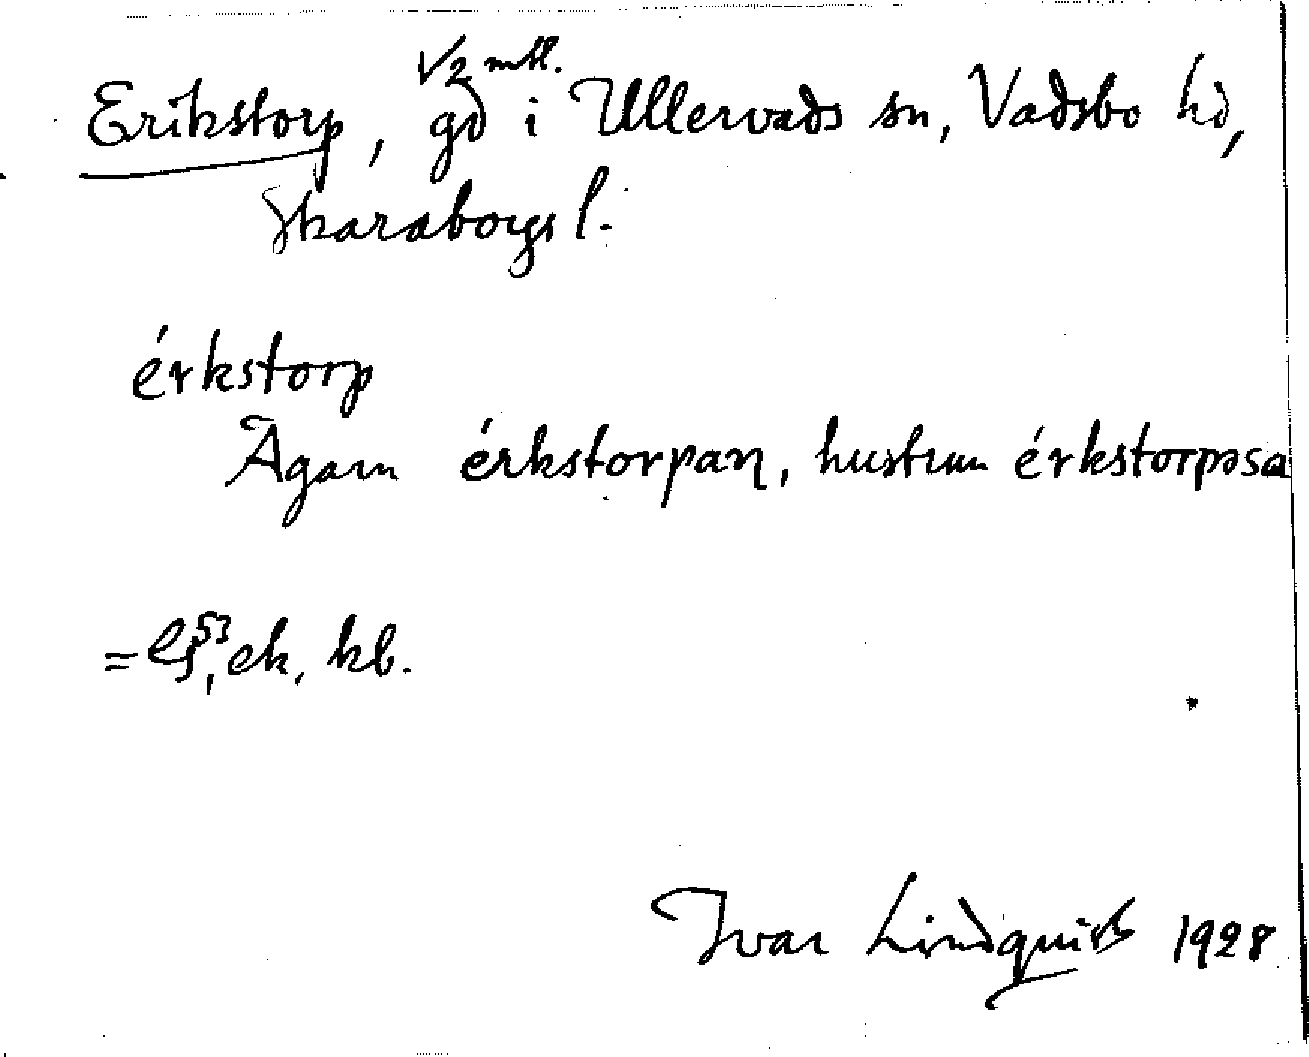 Erikstorp, 1/2 mtl. gd i Ullervads sn, Vadsbo hd,
Skaraborgs l.
érkstorp
Ägarn érkstorpaɳ, hustrun érkstorpəsa
= 53, ek. kb.
Ivar Lindquist 1928